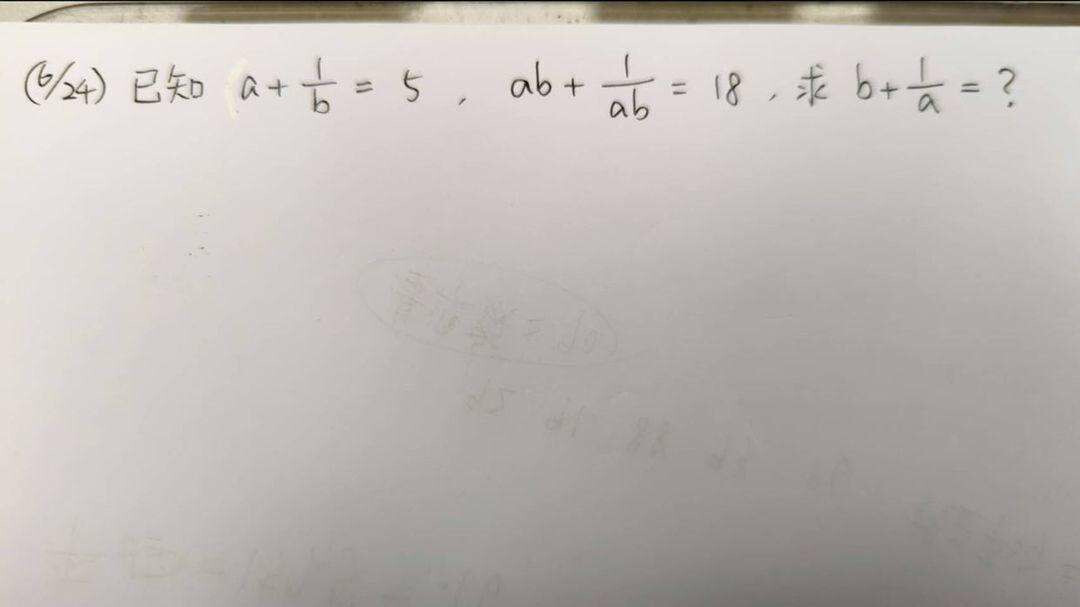 (6/24) 已知 a + 1/b = 5 , ab + 1/ab = 18 , 求 b + 1/a = ?